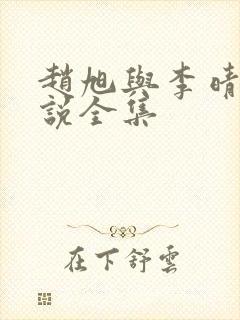 趙旭與李晴
說全集
在下舒雲